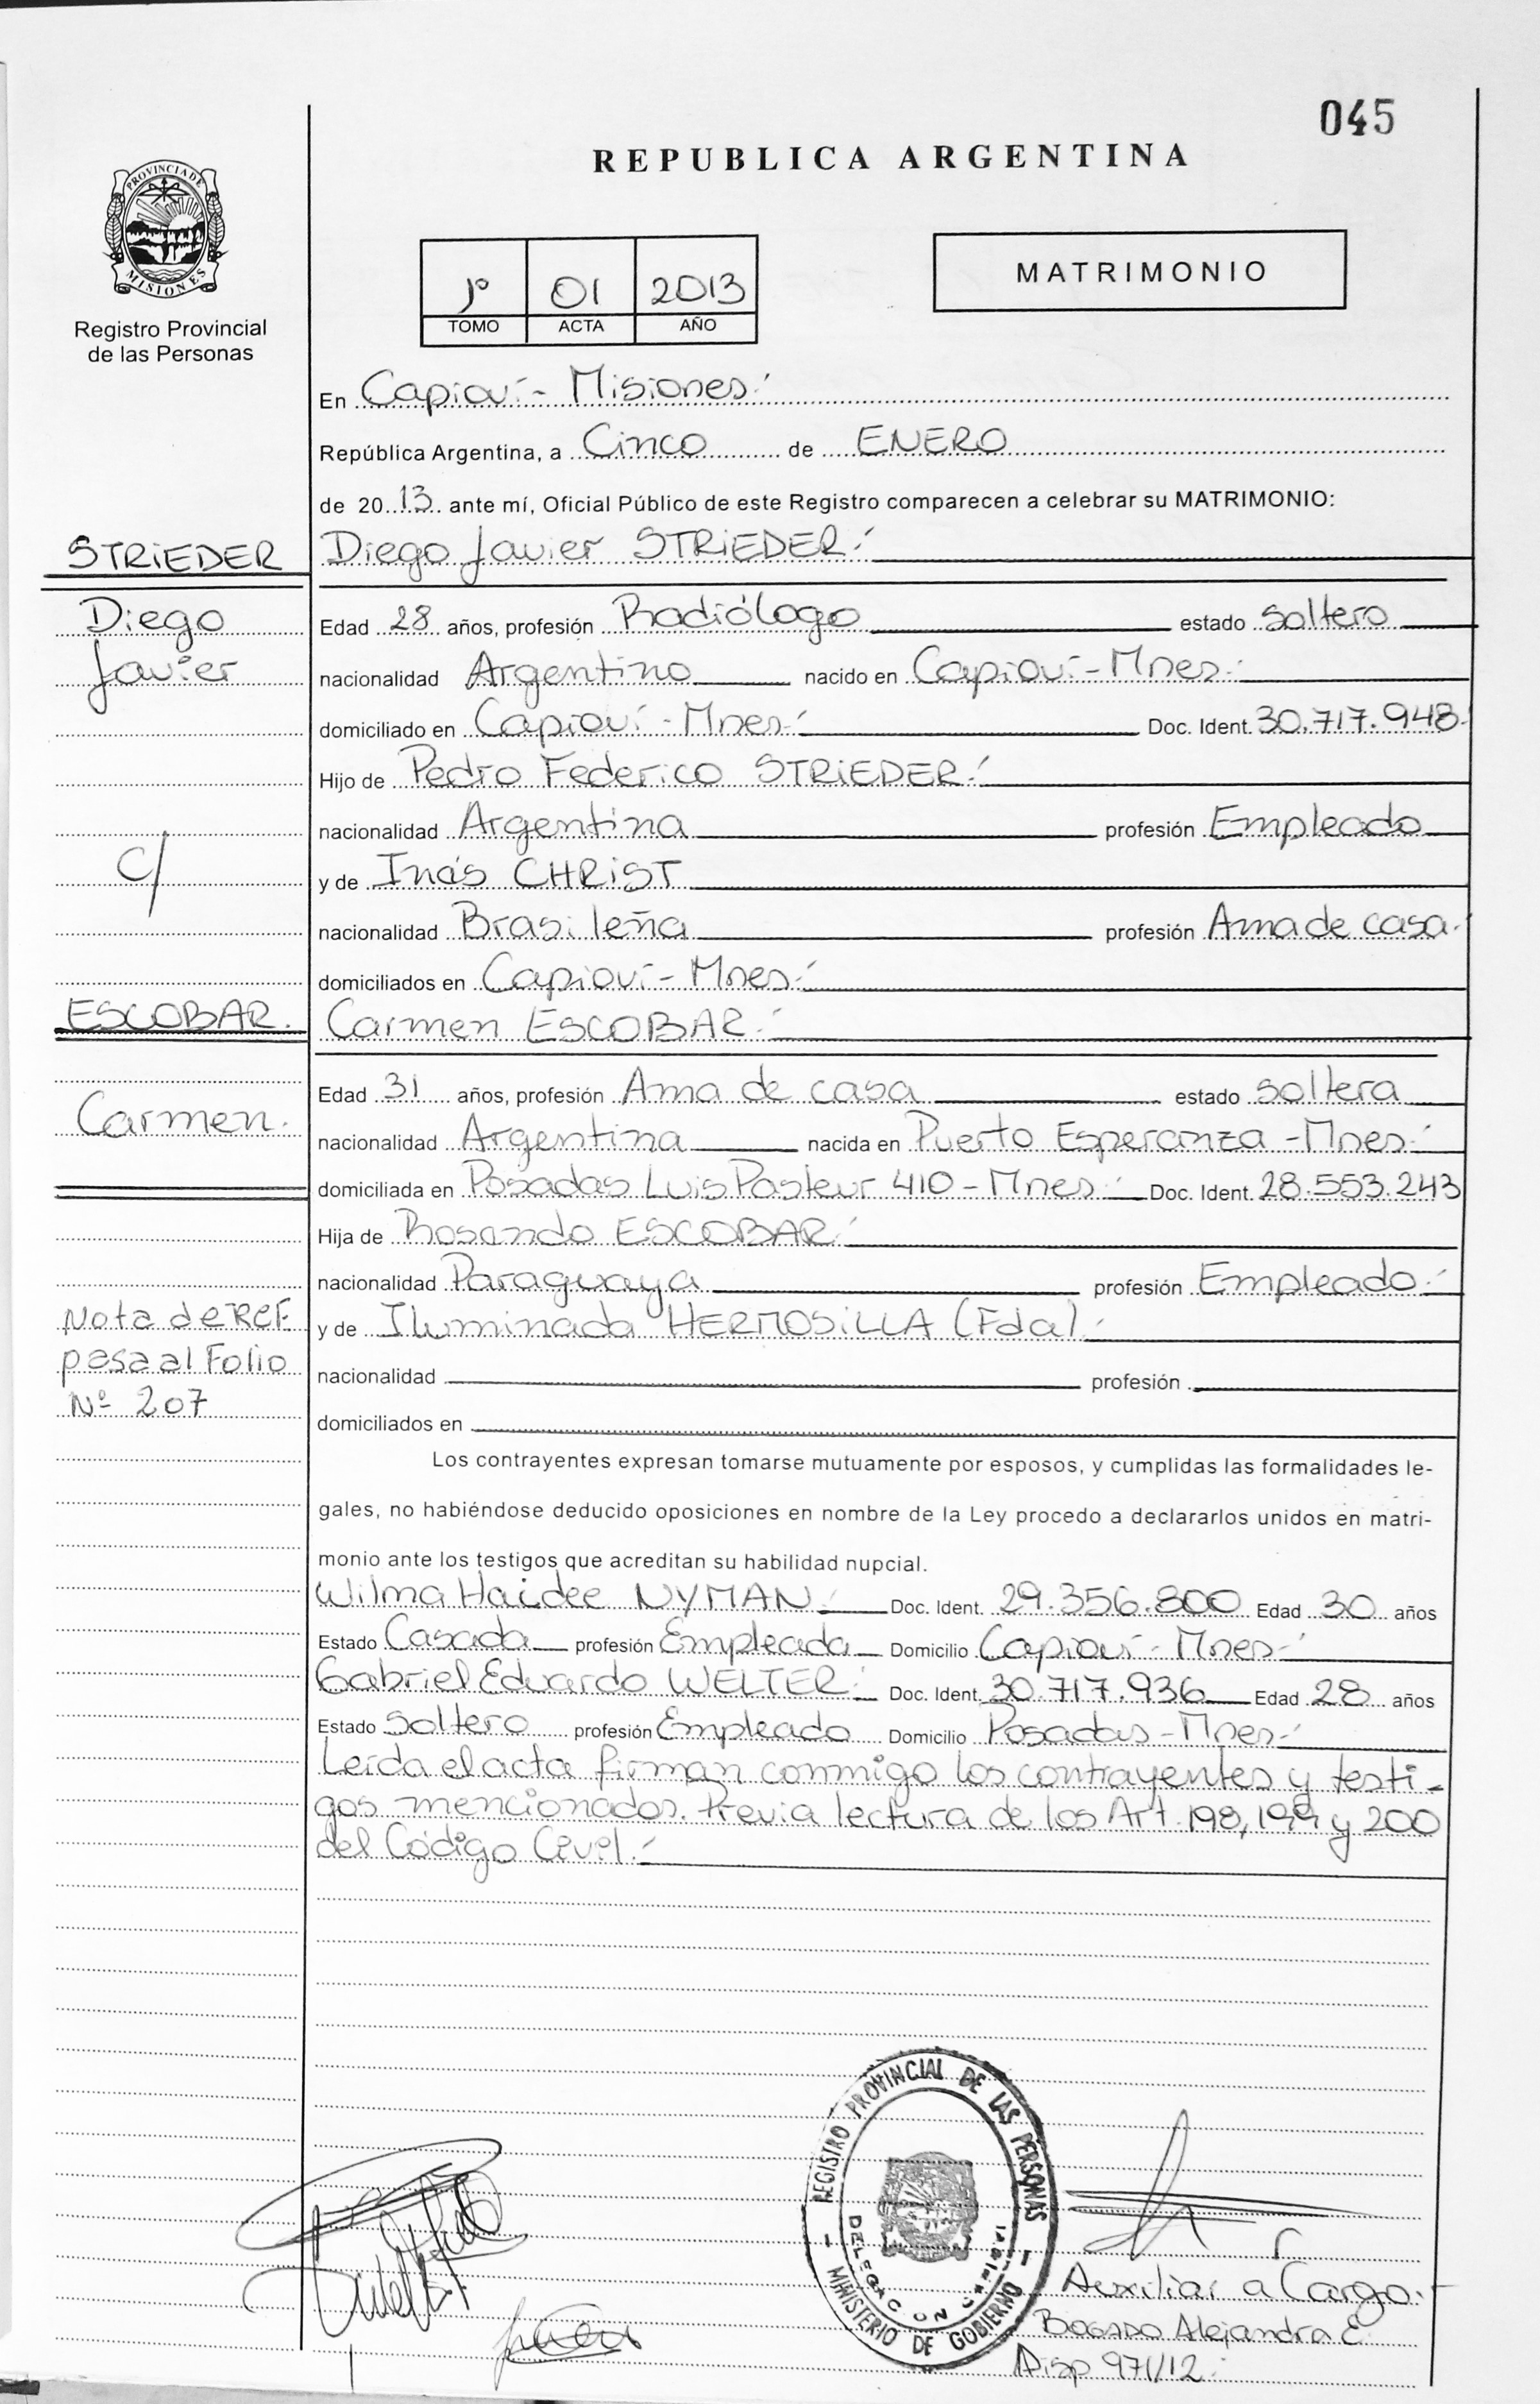 045
REPUBLICA ARGENTINA
PROVINCIA DE
MISIONES
Registro Provincial
de las Personas
1º 01 2013
TOMO ACTA AÑO
MATRIMONIO
En Capioví - Misiones.-
República Argentina, a Cinco de ENERO
de 20 13 ante mí, Oficial Público de este Registro comparecen a celebrar su MATRIMONIO:
STRIEDER
Diego
Javier
c/
ESCOBAR.
Carmen.
Nota de REF.
pasa al Folio
Nº 207
Diego Javier STRIEDER.-
Edad 28 años, profesión Radiólogo estado soltero
nacionalidad Argentino nacido en Capioví - Mnes.-
domiciliado en Capioví - Mnes.- Doc. Ident. 30.717.948.-
Hijo de Pedro Federico STRIEDER.-
nacionalidad Argentina profesión Empleado
y de Inés CHRIST
nacionalidad Brasileña profesión Ama de casa.-
domiciliados en Capioví - Mnes.-
Carmen ESCOBAR.-
Edad 31 años, profesión Ama de casa estado soltera
nacionalidad Argentina nacida en Puerto Esperanza - Mnes.-
domiciliada en Posadas Luis Pasteur 410 - Mnes.- Doc. Ident. 28.553.243
Hija de Rosando ESCOBAR.-
nacionalidad Paraguaya profesión Empleado.-
y de Iluminada HERMOSILLA (Fda).-
nacionalidad profesión
domiciliados en
Los contrayentes expresan tomarse mutuamente por esposos, y cumplidas las formalidades le-
gales, no habiéndose deducido oposiciones en nombre de la Ley procedo a declararlos unidos en matri-
monio ante los testigos que acreditan su habilidad nupcial.
Wilma Haidee NYMAN.- Doc. Ident. 29.356.800 Edad 30 años
Estado Casada profesión Empleada Domicilio Capioví - Mnes.-
Gabriel Eduardo WELTER.- Doc. Ident. 30.717.936 Edad 28 años
Estado Soltero profesión Empleado Domicilio Posadas - Mnes.-
Leída el acta firman conmigo los contrayentes y testi-
gos mencionados. Previa lectura de los Art. 198, 199 y 200
del Código Civil.-
REGISTRO PROVINCIAL DE LAS PERSONAS
DELEGACION CAPIOVI
- MINISTERIO DE GOBIERNO -
Auxiliar a Cargo.-
Bogado Alejandra E.
Disp 971/12.-